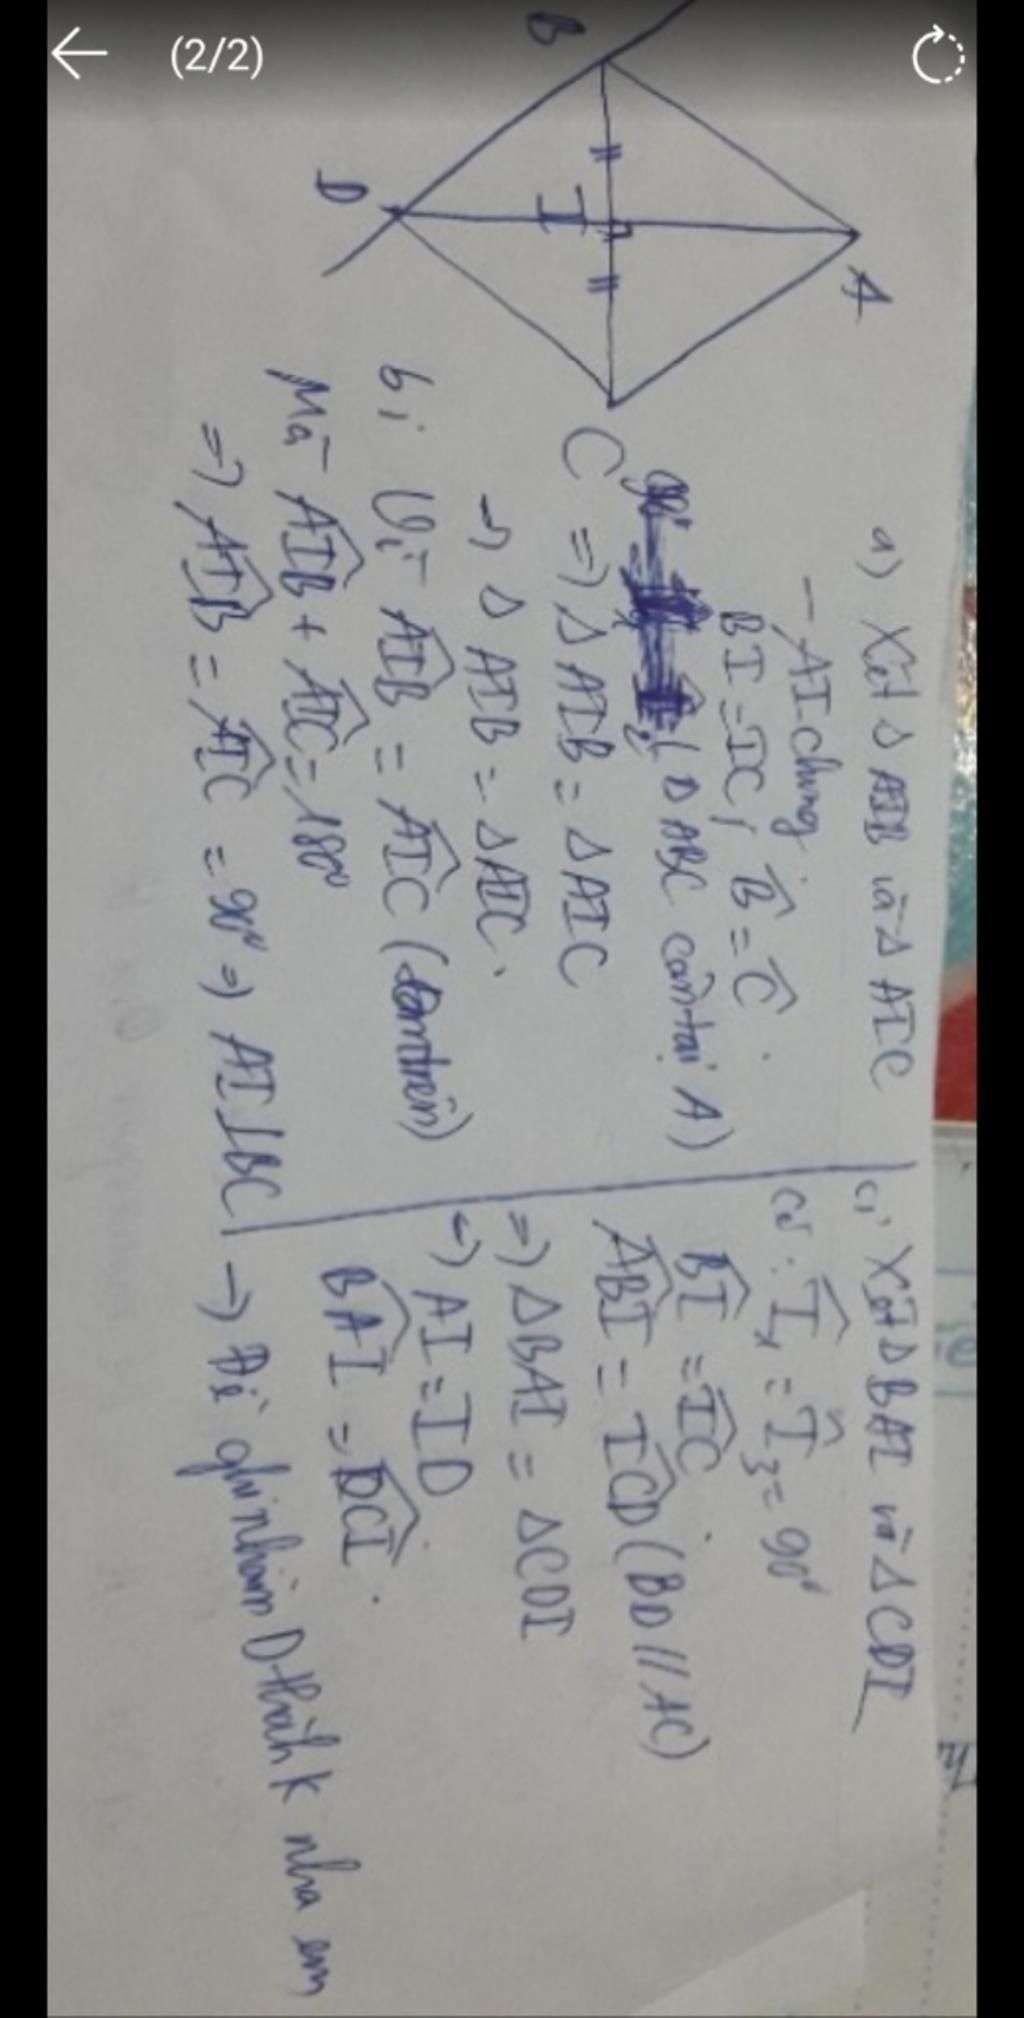 (2/2)
A
B
I
D
C
a) Xét Δ AIB và Δ AIC
- AI chung
BI = IC, B̂ = Ĉ
(Δ ABC cân tại A)
=> Δ AIB = Δ AIC
-> Δ AIB = Δ AIC.
b, Vì AIB̂ = AIĈ (câu trên)
Mà AIB̂ + AIĈ = 180°
=> AIB̂ = AIĈ = 90° => AI⊥BC
c, Xét Δ BAI và Δ CDI
có: Î₁ = Î₃ = 90°
BÎ = IĈ
ABÎ = ICD̂ (BD // AC)
=> Δ BAI = Δ CDI
=> AI = ID
BAÎ = DCÎ.
-> Đề ghi nhầm D thành K nha em